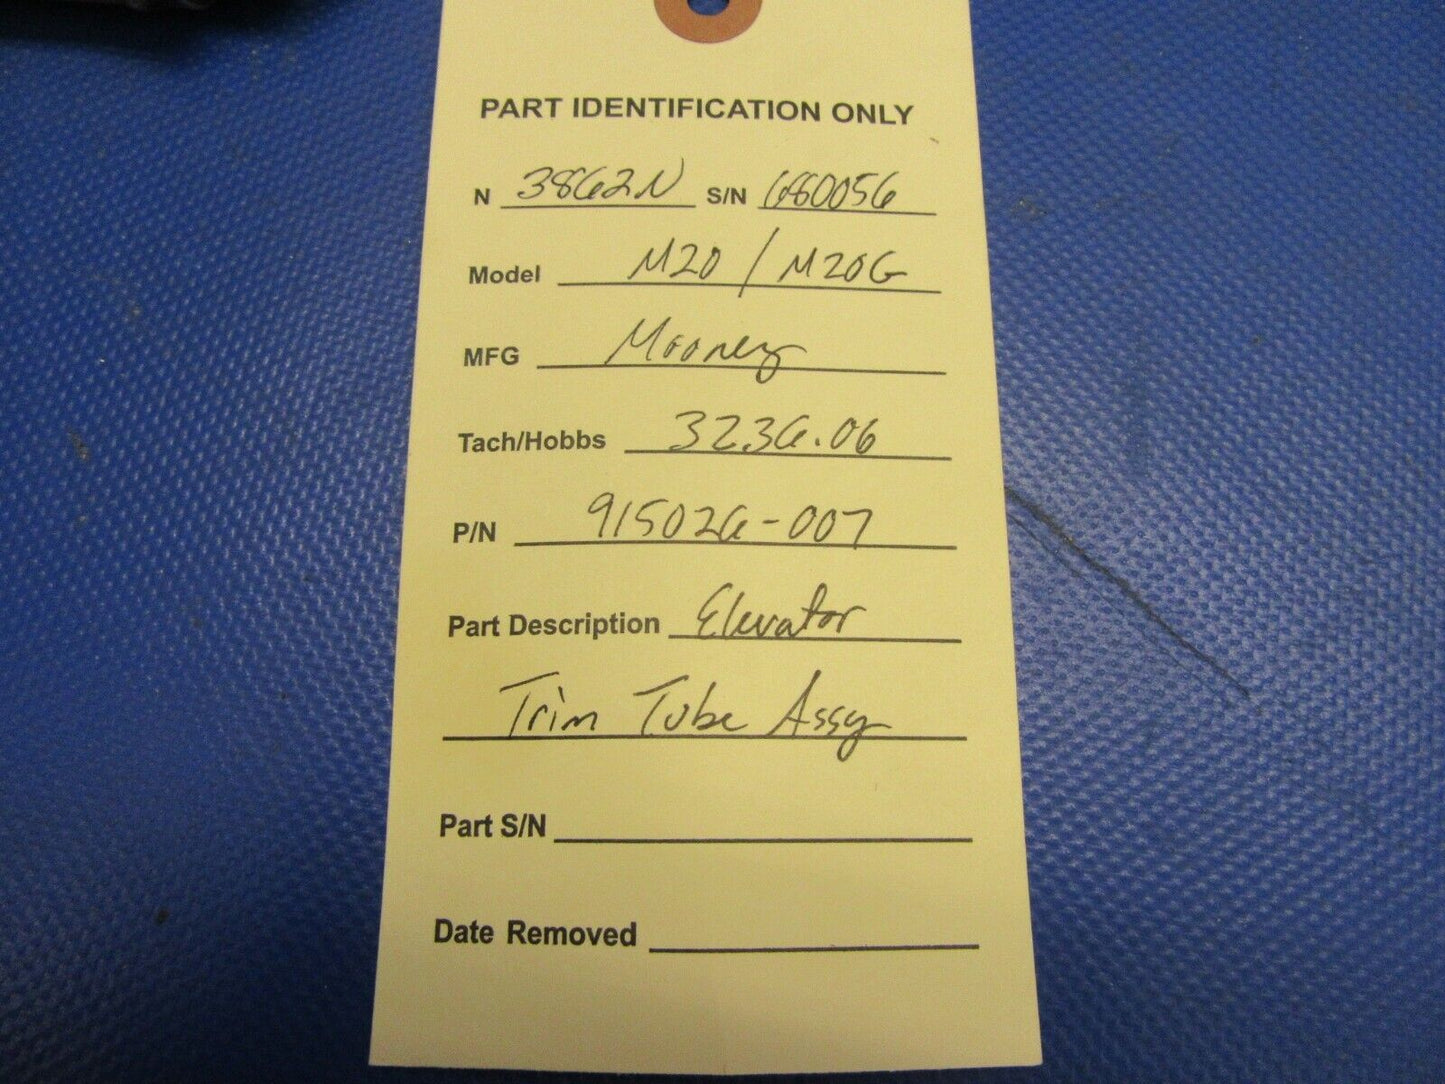 PART IDENTIFICATION ONLY
N 3862N S/N 680056
Model M20 / M20G
MFG Mooney
Tach/Hobbs 3236.06
P/N 915026-007
Part Description Elevator
Trim Tube Assy
Part S/N
Date Removed